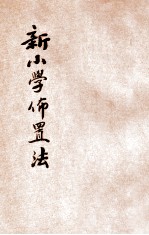 新小學佈置法